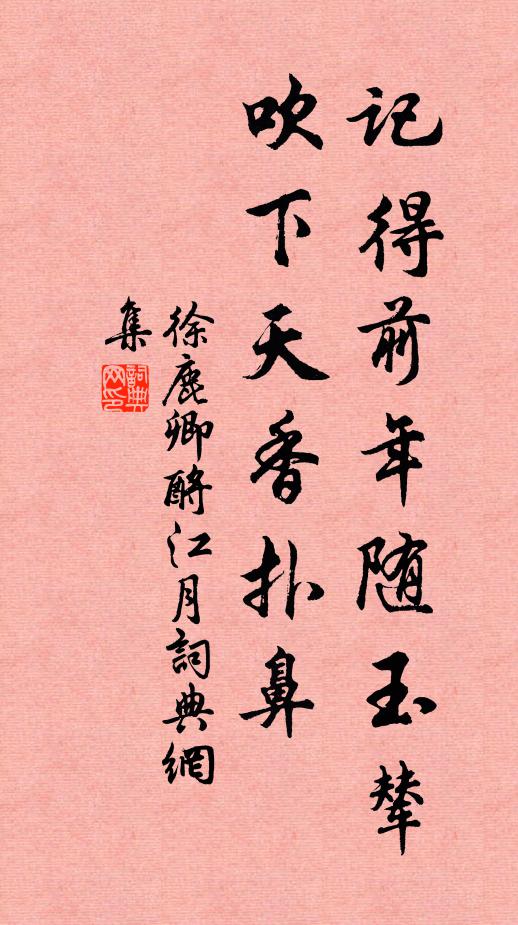 记得前年随玉辇
吹下天香扑鼻
徐鹿卿酹江月詞典網
集
詞典
网印